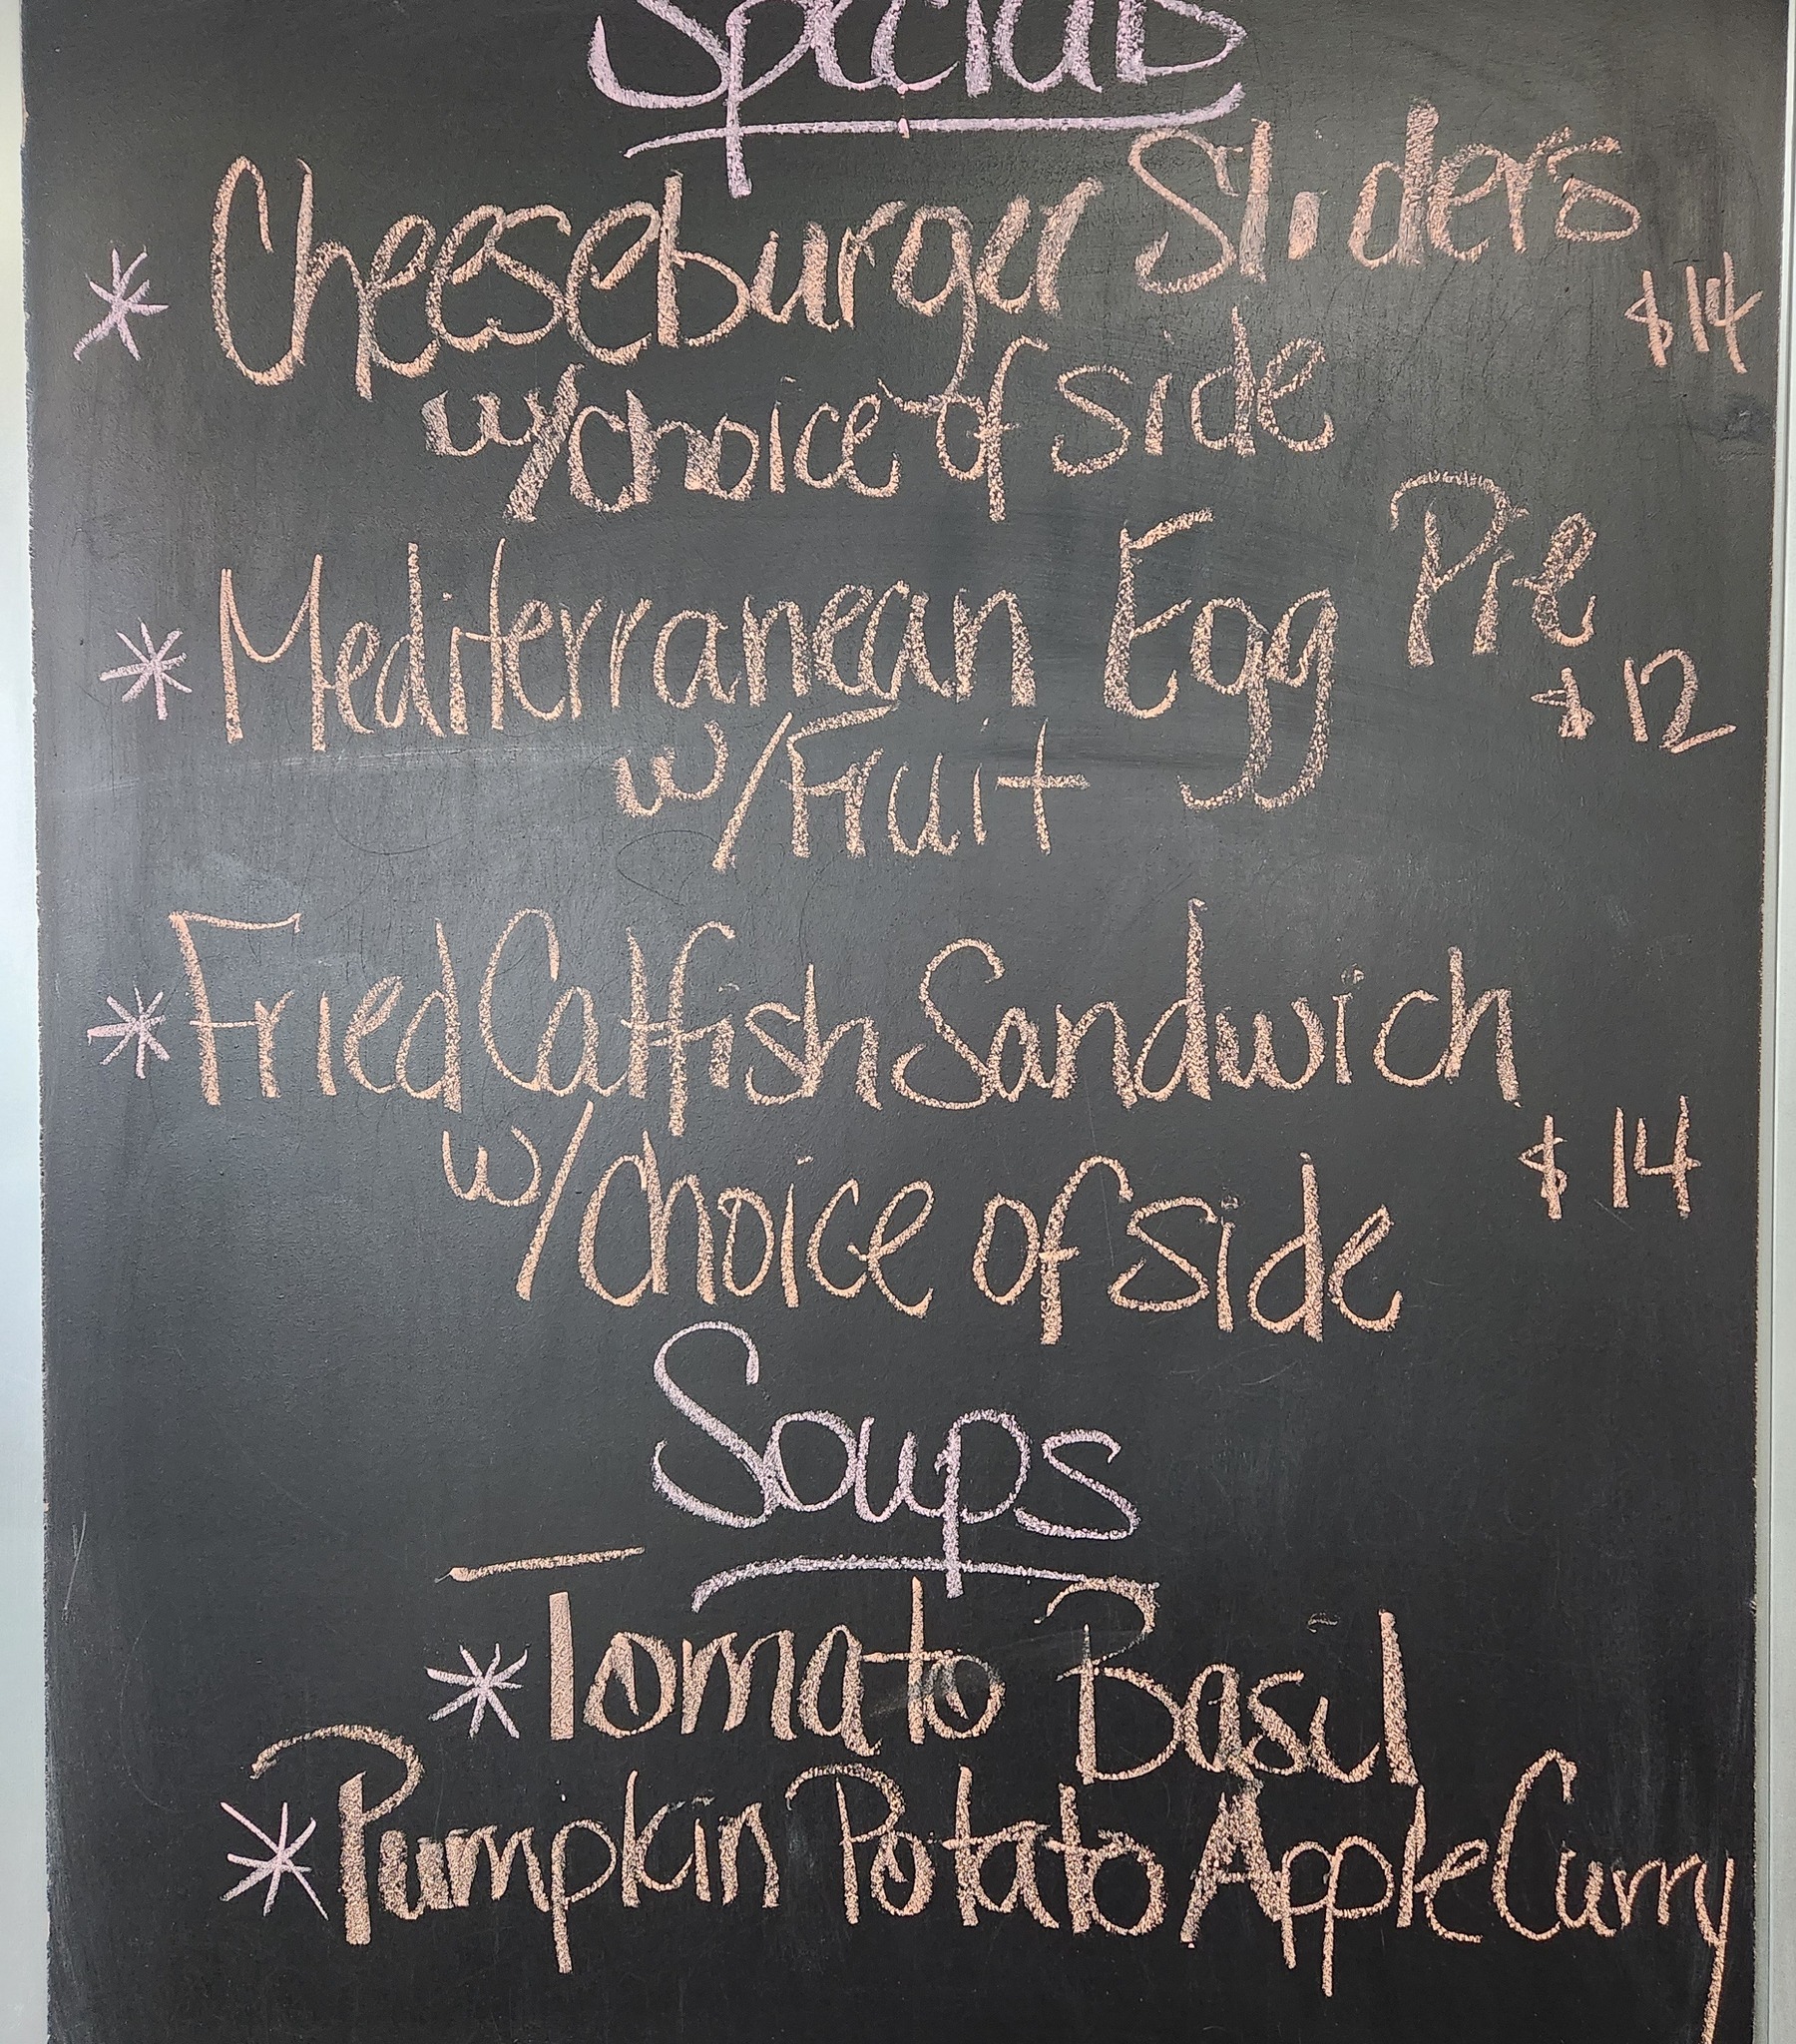 Specials
* Cheeseburger Sliders
$14
w/choice of side
* Mediterranean Egg Pie
$12
w/Fruit
* Fried Catfish Sandwich
$14
w/choice of side
Soups
* Tomato Basil
* Pumpkin Potato Apple Curry